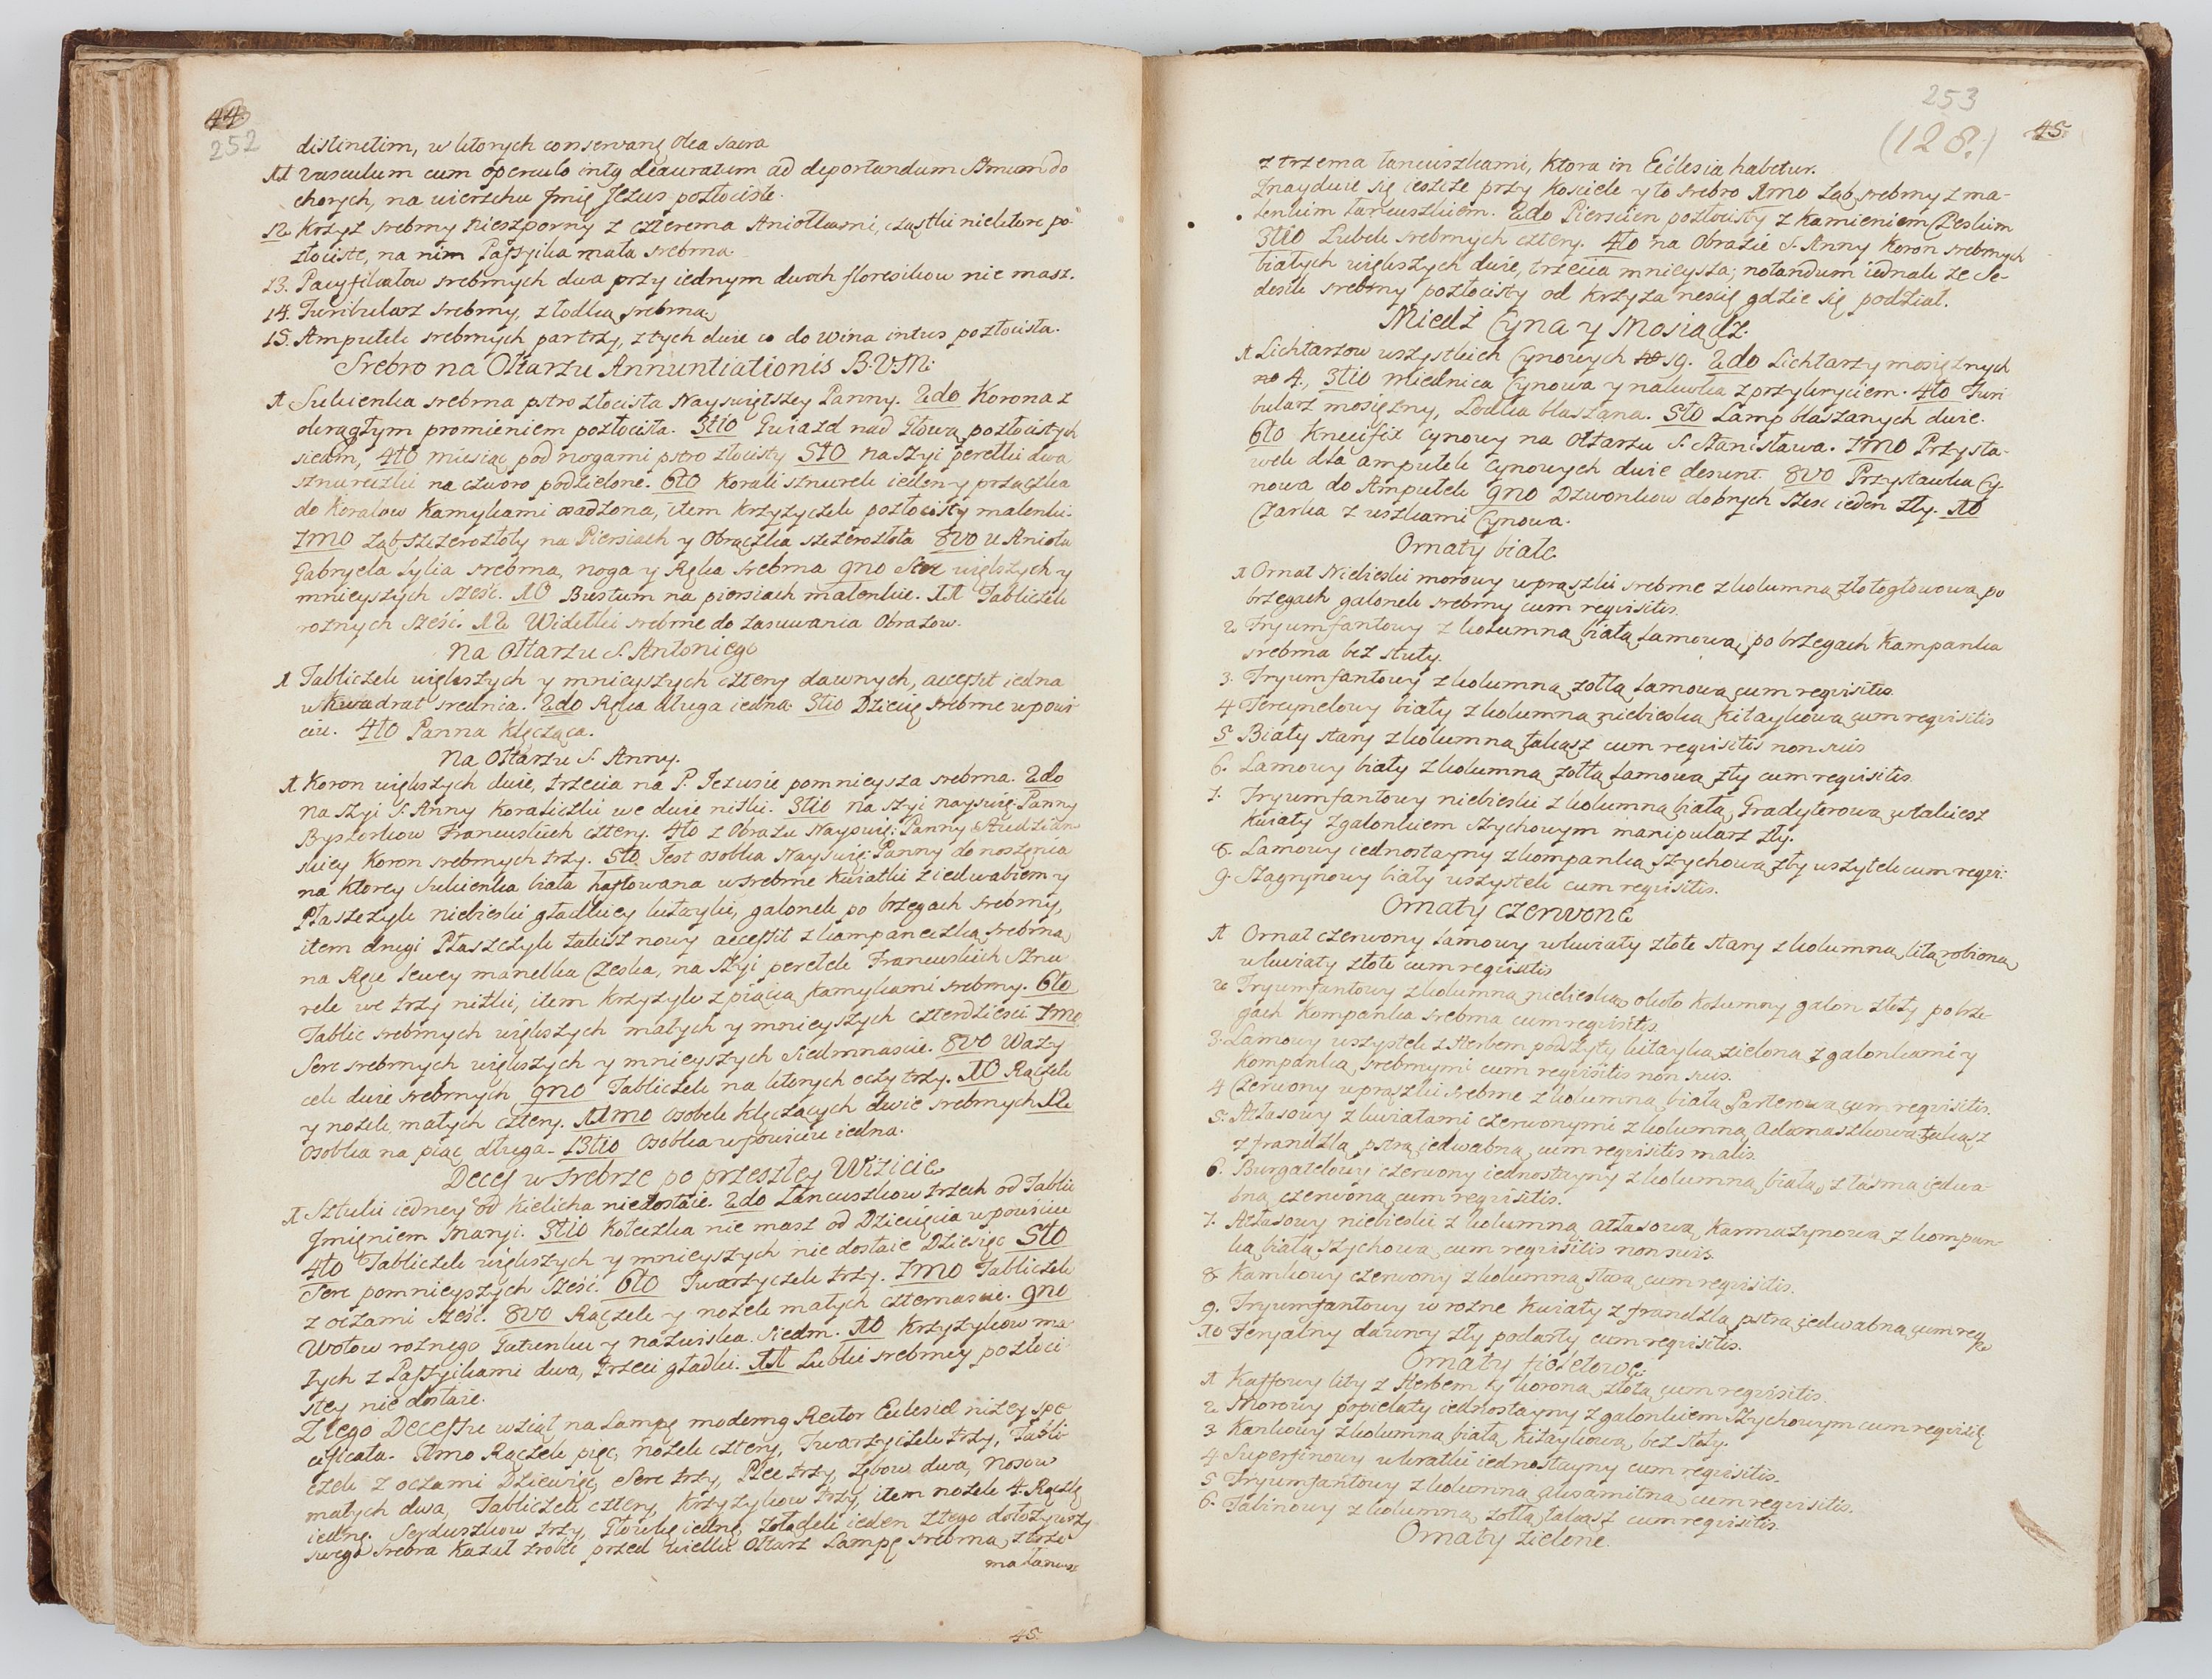 44.
252
distinctim, w ktorych conservanę Olea sacra
11 Vasculum cum operculo intg deauratum ad deportandum SSmum do
chorych, na wierzchu Jmię Jezus pozłociste.
12 Krzyż srebrny Nieszporny z czterema Aniołkami, cząstki niektore po-
złociste, na nim Passyika mała srebrna
13. Pacyfikałow srebrnych dwa przy iednym dwoch floresikow nie masz.
14. Turibularz srebrny, z łodką srebrną
15. Ampułek srebrnych par trzy, z tych dwie co do wina intus pozłocista.
Srebro na Ołtarzu Annuntiationis B.V.M:
1 Sukienka srebrna pstro złocista Nayswiętszey Panny. 2do Korona z
okrągłym promieniem pozłocista. 3tio Gwiazd nad Głową pozłocistych
siedm, 4to miesiąc pod nogami pstro złocisty 5to na szyi perełki dwa
sznureczki na czworo podzielone. 6to Korali sznurek ieden y przączka
do Koralow Kamykami sadzona, item Krzyżyczek pozłocisty malenki.
7mo Ząb szczerozłoty na Piersiach y Obrączka szczerozłota 8vo u Anioła
Gabryela Lylia srebrna, noga y Ręka srebrna 9no Serc większych y
mnieyszych sześć. 10 Bustum na piersiach malenkie. 11 Tabliczek
rożnych sześć. 12 Widełki srebrne do zasuwania Obrazow.
Na Ołtarzu S. Antoniego
1 Tabliczek większych y mnieyszych cztery dawnych, accessit iedna
w kwadrat srednica. 2do Ręka długa iedna. 3tio Dziecię srebrne w powi-
ciu. 4to Panna Klęcząca.
Na Ołtarzu S. Anny.
1 Koron większych dwie, trzecia na P. Jezusie pomnieysza srebrna. 2do
na szyi S. Anny Koraliczki we dwie nitki. 3tio na szyi nayswię: Panny
Bysiorkow Francuskich cztery. 4to z Obrazu Nayswię: Panny Studzian-
skiey Koron srebrnych trzy. 5to Jest osobka Nayswię: Panny do noszęnia
na ktorey Sukienka biała haftowana w srebrne kwiatki z iedwabiem y
Płaszczyk niebieski gładkiey kitayki, galonek po brzegach srebrny,
item drugi Płaszczyk takisz nowy accessit z kampaneczką srebrną
na Ręce lewey manelka Czeska, na szyi perełek Francuskich sznu-
rek we trzy nitki, item Krzyżyk z piącią Kamykami srebrny. 6to
Tablic srebrnych większych małych y mnieyszych czterdziesci 7mo
Serc srebrnych większych y mnieyszych siedmnascie. 8vo Waży-
cek dwie srebrnych, 9no Tabliczek na ktorych oczy trzy. 10 Rączek
y nożek małych cztery. 11mo Osobek klęczących dwie srebrnych 12
Osobka na piąć długa. 13tio Osobka w powiciu iedna.
Deces w Srebrze po przeszłey Wizicie
1 Sztuki iedney od Kielicha niedostaie. 2do Łancuszkow trzech od Tablic
Jmięniem Maryi. 3tio Kołeczka nie masz od Dziecięcia w powiciu
4to Tabliczek większych y mnieyszych nie dostaie Dziesięc 5to
Serc pomnieyszych sześć. 6to Twarzyczek trzy. 7mo Tabliczek
z oczami sześć. 8vo Rączek y nożek małych czternascie. 9no
Wotow rożnego Gatunku y nazwiska siedm. 10 Krzyżykow ma-
łych z Passyikami dwa, trzeci gładki. 11 Lubki srebrney pozłoci-
stey nie dostaie.
Z tego Decessu wziął na Lampę moderng Rector Ecclesiæ niżey spe-
cificata. 1mo Rączek pięc, nożek cztery, Twarzyczek trzy, Tabli-
czek z oczami Dziewięć, Serc trzy, Plec trzy, zębow dwa, Nosow
małych dwa, Tabliczek cztery, Krzyżykow trzy, item nożek 4. Rączkę
iednę. Serduszkow trzy, Głowkę iednę, żołądek ieden z tego dołożywszy
swego srebra kazał zrobić przed wielki Ołtarz Lampę srebrną, z trze-
ma łancusz
45.
253
(128.)
45.
z trzema łancuszkami, Ktora in Ecclesia habetur.
Znayduie się ieszcze przy Kosciele y to srebro 1mo Ząb srebrny z ma-
lenkim łancuszkiem. 2do Pierscien pozłocisty z Kamieniem Czeskim
3tio Lubek srebrnych cztery. 4to na Obrazie S. Anny Koron srebrnych
białych większych dwie, trzecia mnieysza; notandum iednak że Se-
desek srebrny pozłocisty od Krzyża nescię gdzie się podział.
Miedź Cyna y Mosiądz.
1 Lichtarzow wszystkich Cynowych 19. 2do Lichtarzy mosiężnych
no 4., 3tio Miednica Cynowa y nalewka z przykryciem. 4to Turi-
bularz mosiężny, Łodka blaszana. 5to Lamp blaszanych dwie.
6to Krucifix cynowy na Ołtarzu S. Stanisława. 7mo Przysta-
wek dla ampułek cynowych dwie desunt. 8vo Przystawka Cy-
nowa do Ampułek 9no Dzwonkow dobrych sześć ieden zły. 10
Czarka z uszkami Cynowa.
Ornaty białe
1 Ornat Niebieski morowy w prąszki srebrne z kolumną złotogłowową, po
brzegach galonek srebrny cum requisitis.
2 Tryumfantowy z kolumną białą Lamową, po brzegach Kampanka
srebrna bez stuły.
3. Tryumfantowy z kolumną żołtą Lamową cum requisitis.
4 Tercynelowy biały z kolumną niebieską Kitaykową cum requisitis
5 Biały stary z kolumną takąsz cum requisitis non suis
6. Lamowy biały z kolumną żołtą Lamową zły cum requisitis.
7. Tryumfantowy niebieski z kolumną białą, Gradyterową w takiesz
Kwiaty z galonkiem szychowym manipularz zły.
8. Lamowy iednostayny z kompanką szychową zły wszytek cum requi:
9. Szagrynowy biały wszystek cum requisitis.
Ornaty czerwone
1 Ornat czerwony Lamowy w kwiaty złote stary z kolumną litą robioną
w kwiaty złote cum requisitis
2 Tryumfantowy z kolumną niebieską około kolumny galon złoty po brze-
gach Kompanka srebrna cum requisitis.
3. Lamowy wszystek z Herbem podszyty kitayką zieloną z galonkami y
Kompanką srebrnymi cum requisitis non suis.
4 Czerwony w prąszki srebrne z kolumną białą Parterową cum requisitis.
5. Atłasowy z kwiatami czerwonymi z kolumną Adamaszkową takąsz
z frandzlą pstrą iedwabną cum requisitis malis.
6. Burgatelowy czerwony iednostayny z kolumną białą, z tasmą iedwa-
bną czerwoną cum requisitis.
7. Atłasowy niebieski z kolumną atłasową Karmazynową z kompan-
ką białą szychową cum requisitis non suis.
8 Kamkowy czerwony z kolumną starą cum requisitis.
9. Tryumfantowy w rożne kwiaty z frandzlą pstrą iedwabną cum req
10 Feryalny dawny zły podarty cum requisitis.
Ornaty fioletowe.
1 Kaffowy lity z Herbem y koroną złotą cum requisitis.
2 Morowy popielaty iednostayny z galonkiem szychowym cum requisitę
3 Kankowy z kolumną białą Kitaykową bez stuły.
4 Superfinowy w kratki iednostayny cum requisitis.
5 Tryumfantowy z kolumną axamitną cum requisitis.
6. Tabinowy z kolumną żołtą takąsz cum requisitis.
Ornaty zielone.